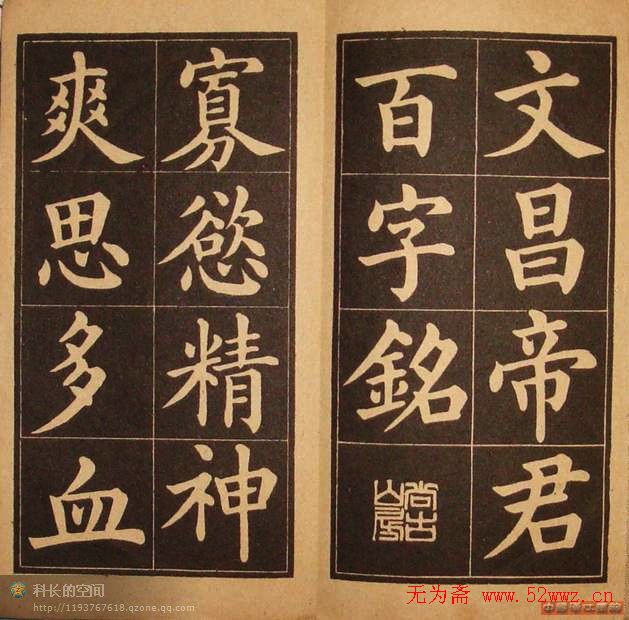 文昌帝君
百字銘
尚古山房
寡慾精神
爽思多血
科长的空间
http://1193767618.qzone.qq.com
无为斋 www.52wwz.cn